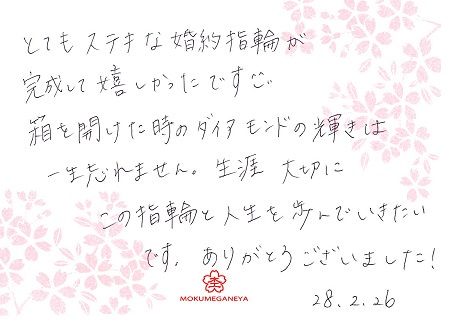 とてもステキな婚約指輪が
完成して嬉しかったです
箱を開けた時のダイアモンドの輝きは
一生忘れません。生涯 大切に
この指輪と人生を歩んでいきたい
です。ありがとうございました!
MOKUMEGANEYA
28.2.26